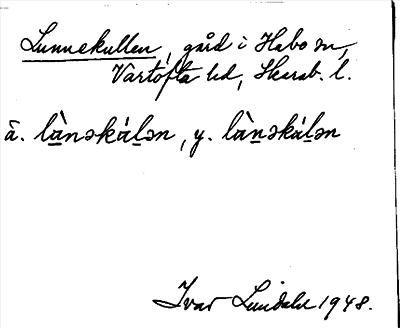 Lunnekullen, gård i Habo sn,
Vartofta hd, Skarab. l.
ä. lὰnəkúlən, y. lὰnəkúlən
Ivar Lundahl 1948.